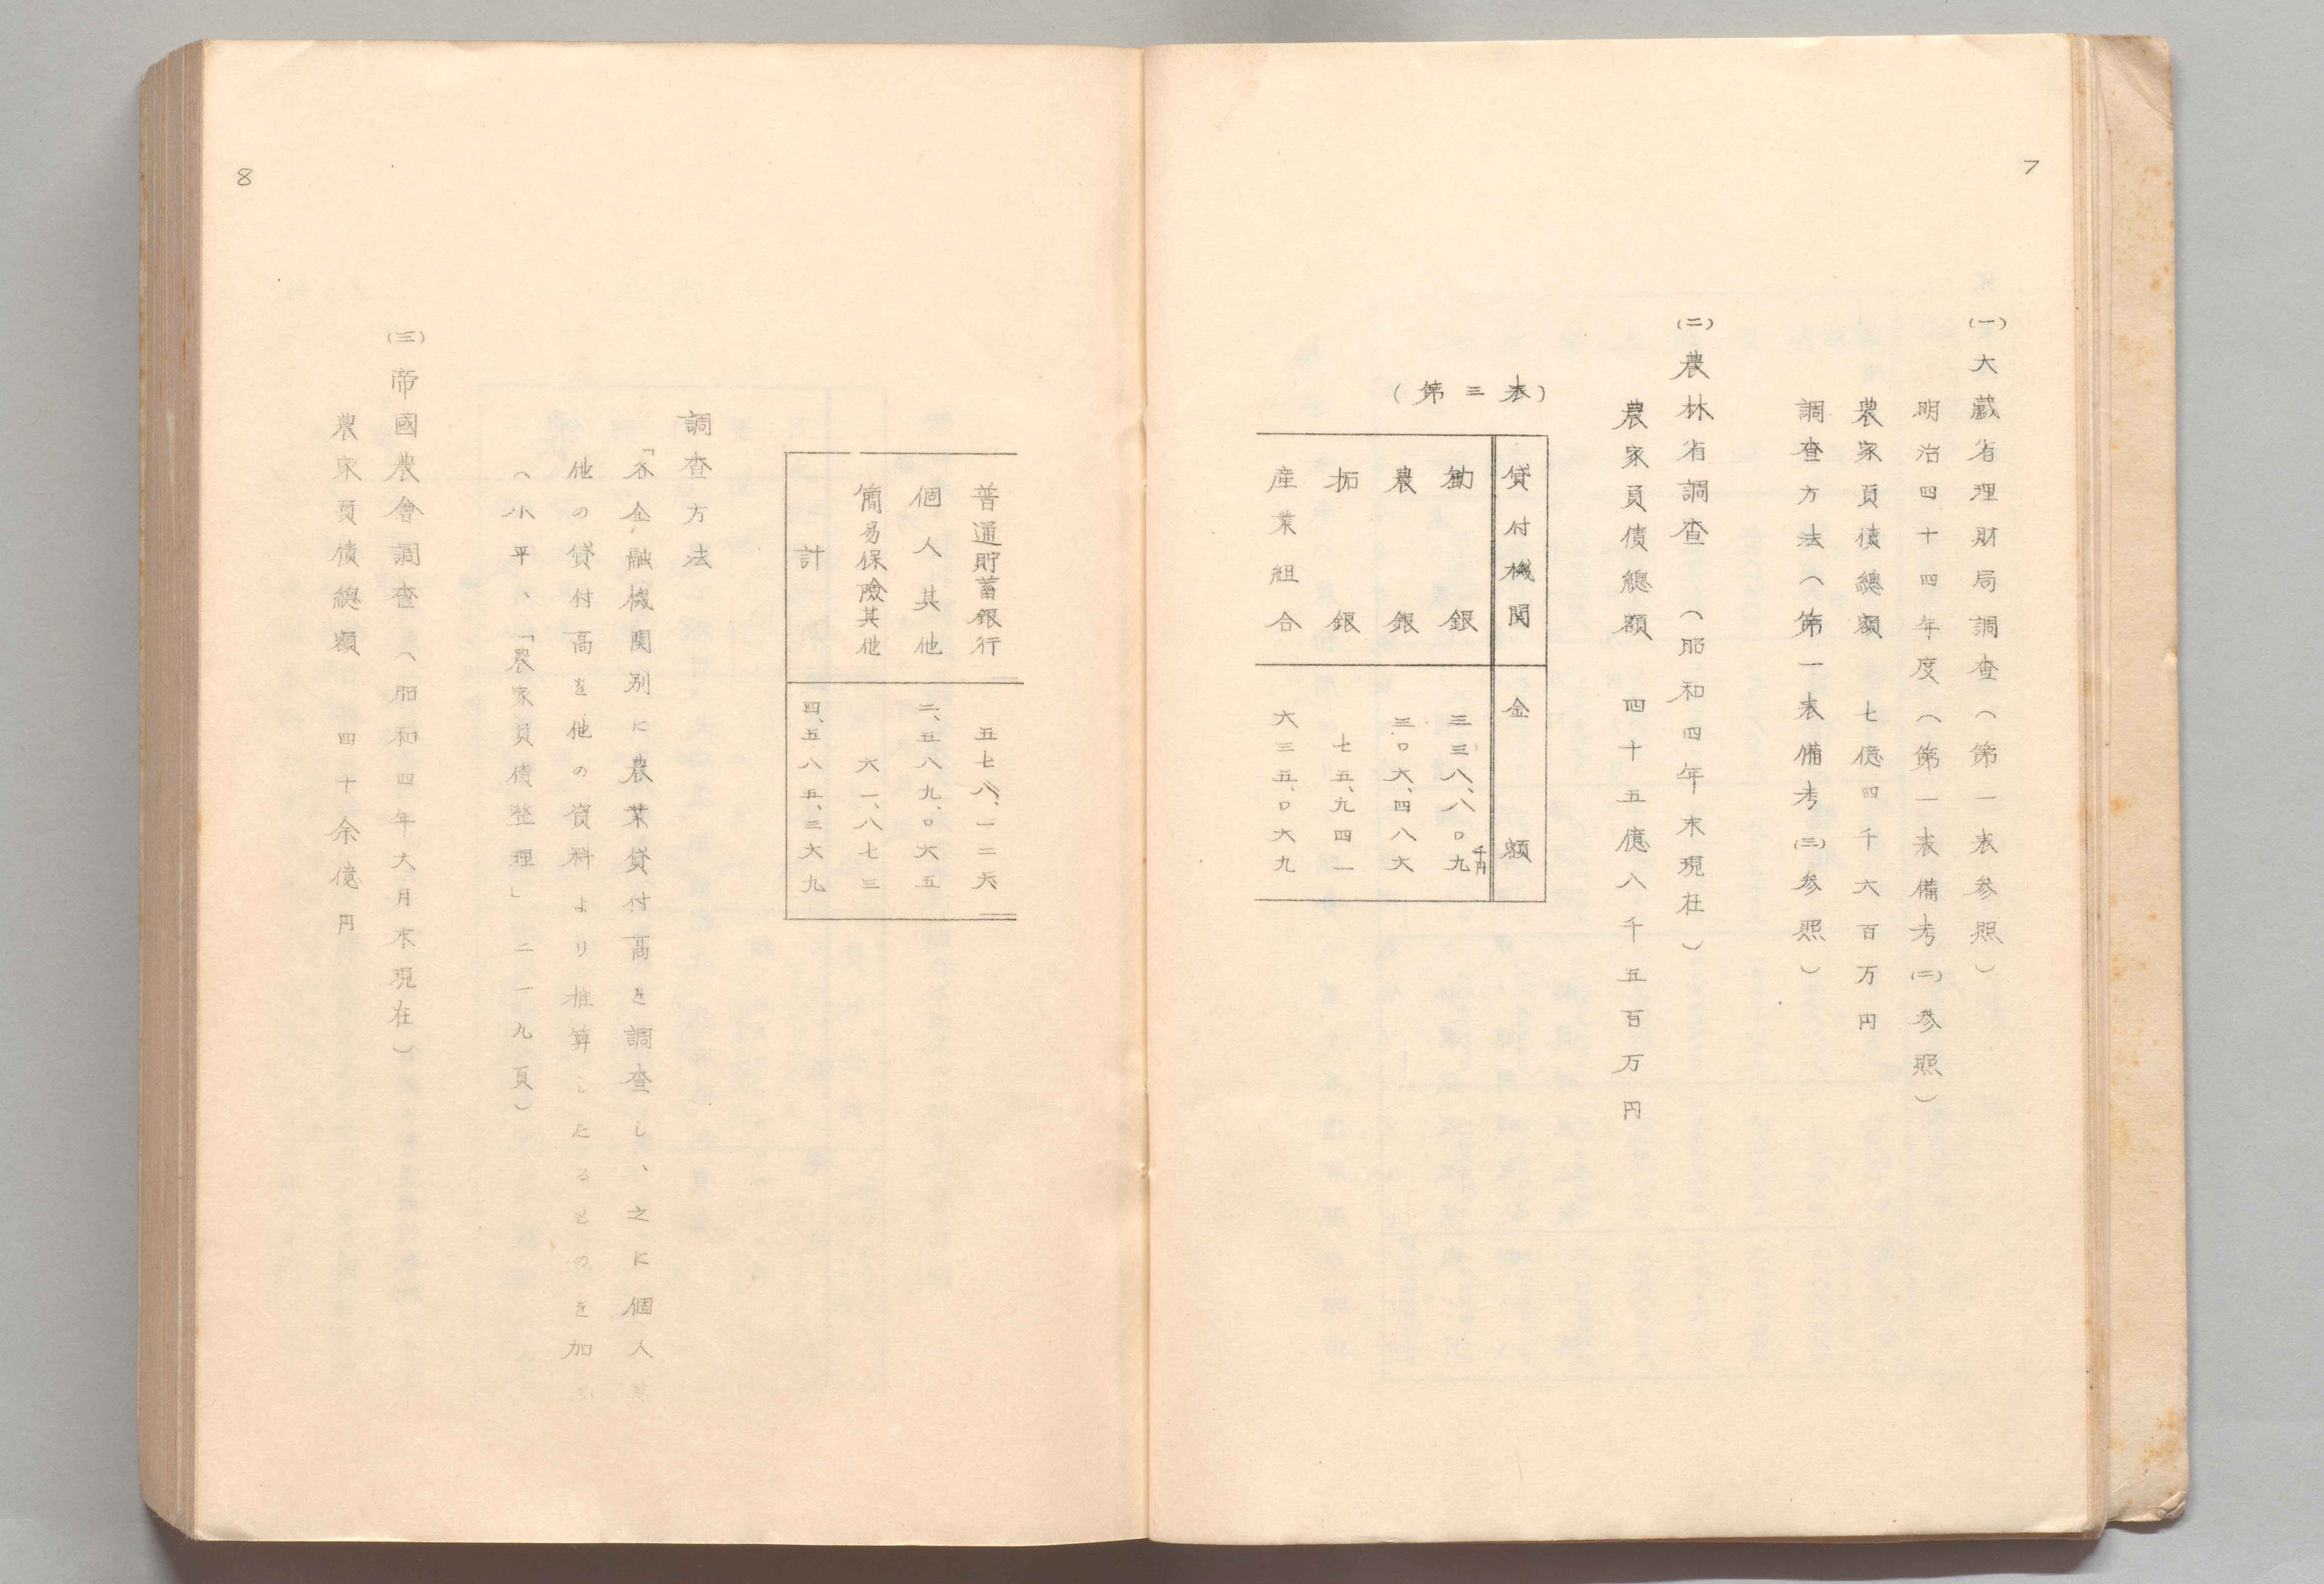 7
(一)大蔵省理財局調査（第一表参照）
明治四十四年度（第一表備考(二)参照）
農家負債總額　七億四千六百万円
調査方法（第一表備考(三)参照）
(二)農林省調査　（昭和四年末現在）
農家負債總額　四十五億八千五百万円
（第三表）
貸付機関　金額
勧銀　三三八、八〇九千円
農銀　三〇六、四八六
拓銀　七五、九四一
産業組合　六三五、〇六九
8
普通貯蓄銀行　五七八、一二六
個人其他　二、五八九、〇六五
簡易保險其他　六一、八七三
計　四、五八五、三六九
調査方法
「各金融機関別に農業貸付高を調査し、之に個人其
他の貸付高を他の資料より推算したるものを加ふ
（小平、「農家負債整理」二一九頁）
(三)帝國農會調査（昭和四年六月末現在）
農家負債總額　四十余億円